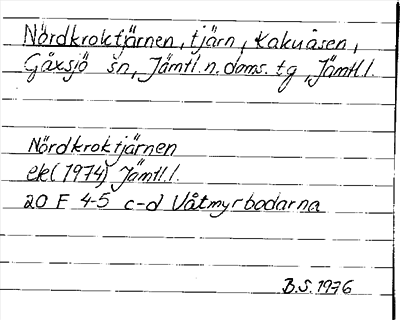 Nördkroktjärnen, tjärn, Kakuåsen,
Gåxsjö sn, Jämtl.n.doms.tg, Jämtl.l.
Nördkroktjärnen
ek(1974) Jämtl.l.
20 F 4-5 c-d Våtmyrbodarna
B.S. 1976